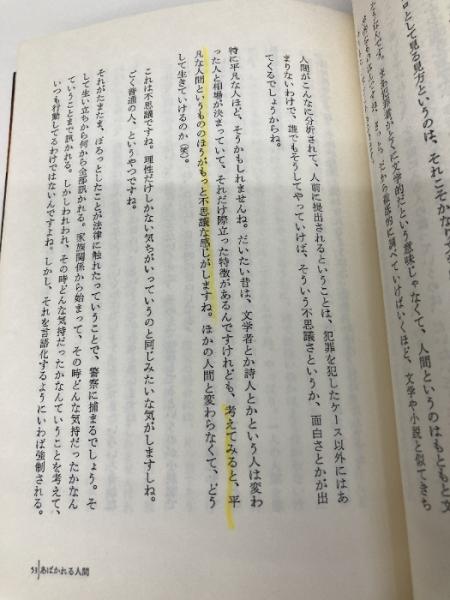 ロとして見る見方というのは、それこそかなり
文学的だという意味じゃなくて、人間というのはもともと文
ていけばいくほど、文学や小説と似てきち
人間がこんなに分析されて、人前に提出されるということは、犯罪を犯したケース以外にはあ
まりないわけで、誰でもそうしてやっていけば、そういう不思議さというか、面白さとかが出
てくるでしょうからね。
特に平凡な人ほど、そうかもしれませんね。だいたい昔は、文学者とか詩人とかという人は変わ
った人と相場が決まっていて、それだけ際立った特徴があるんですけれども、考えてみると、平
凡な人間というもののほうがもっと不思議な感じがしますね。ほかの人間と変わらなくて、どう
して生きていけるのか（笑）。
これは不思議ですね。理性だけしかない気ちがいっていうのと同じみたいな気がしますしね。
ごく普通の人、というやつですね。
それがたまたま、ぽろっとしたことが法律に触れたっていうことで、警察に捕まるでしょう。そ
して生い立ちから何から全部訊かれる。家族関係から始まって、その時どんな気持だったかなん
ていうことまで訊かれる。しかしわれわれ、その時どんな気持だったかなんていうことを考えて、
いつも行動してるわけではないんですよね。しかし、それを言語化するようにいわば強制される。
53 あばかれる人間